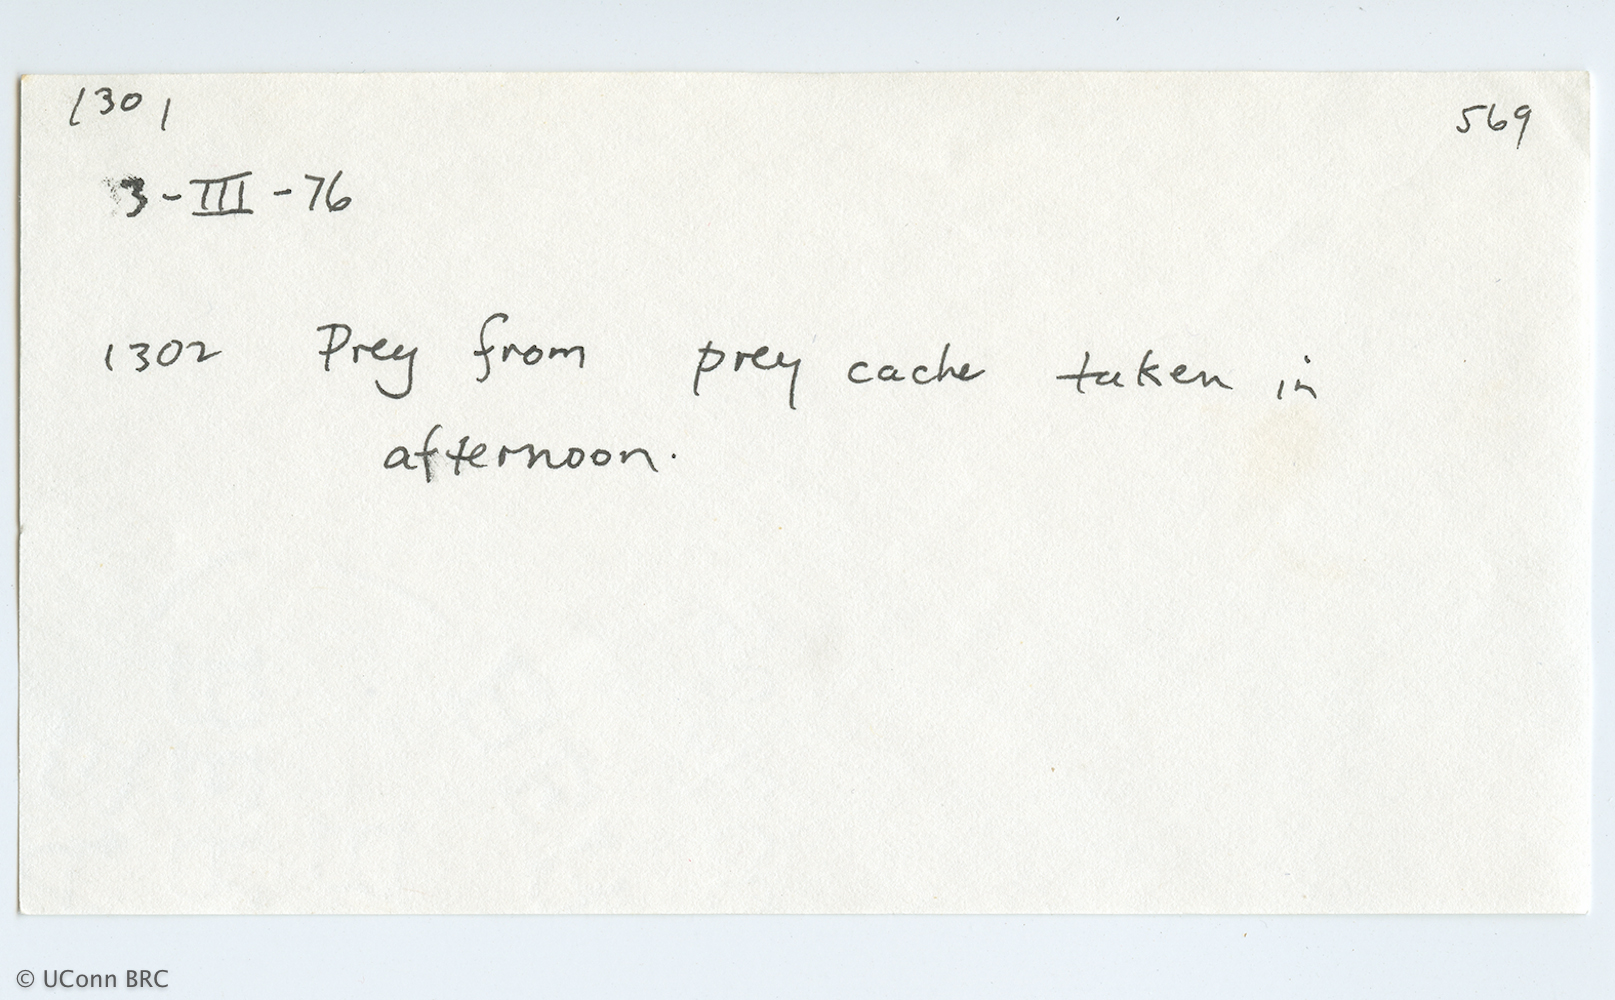 1301 569
3-III-76
1302 Prey from prey cache taken in
afternoon.
© UConn BRC